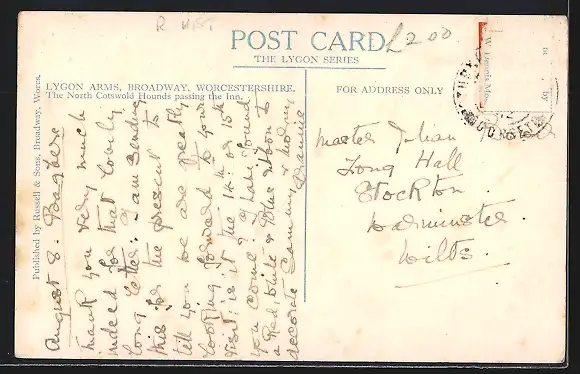 R
£2.00
POST CARD
THE LYGON SERIES
LYGON ARMS, BROADWAY, WORCESTERSHIRE.
The North Cotswold Hounds passing the Inn.
FOR ADDRESS ONLY
Published by Russell & Sons, Broadway, Worcs.
August 8.
Thank you very much
indeed for that lovely
long letter. I am sending
this for the present to
tell you we are really
looking forward to your
visit; is it the 14th or 15th
you come? I have found
a Red, White & Blue ribbon to
decorate Sammy &
DORSET
Master Julian
Long Hall
Stockton
Warminster.
Wilts.